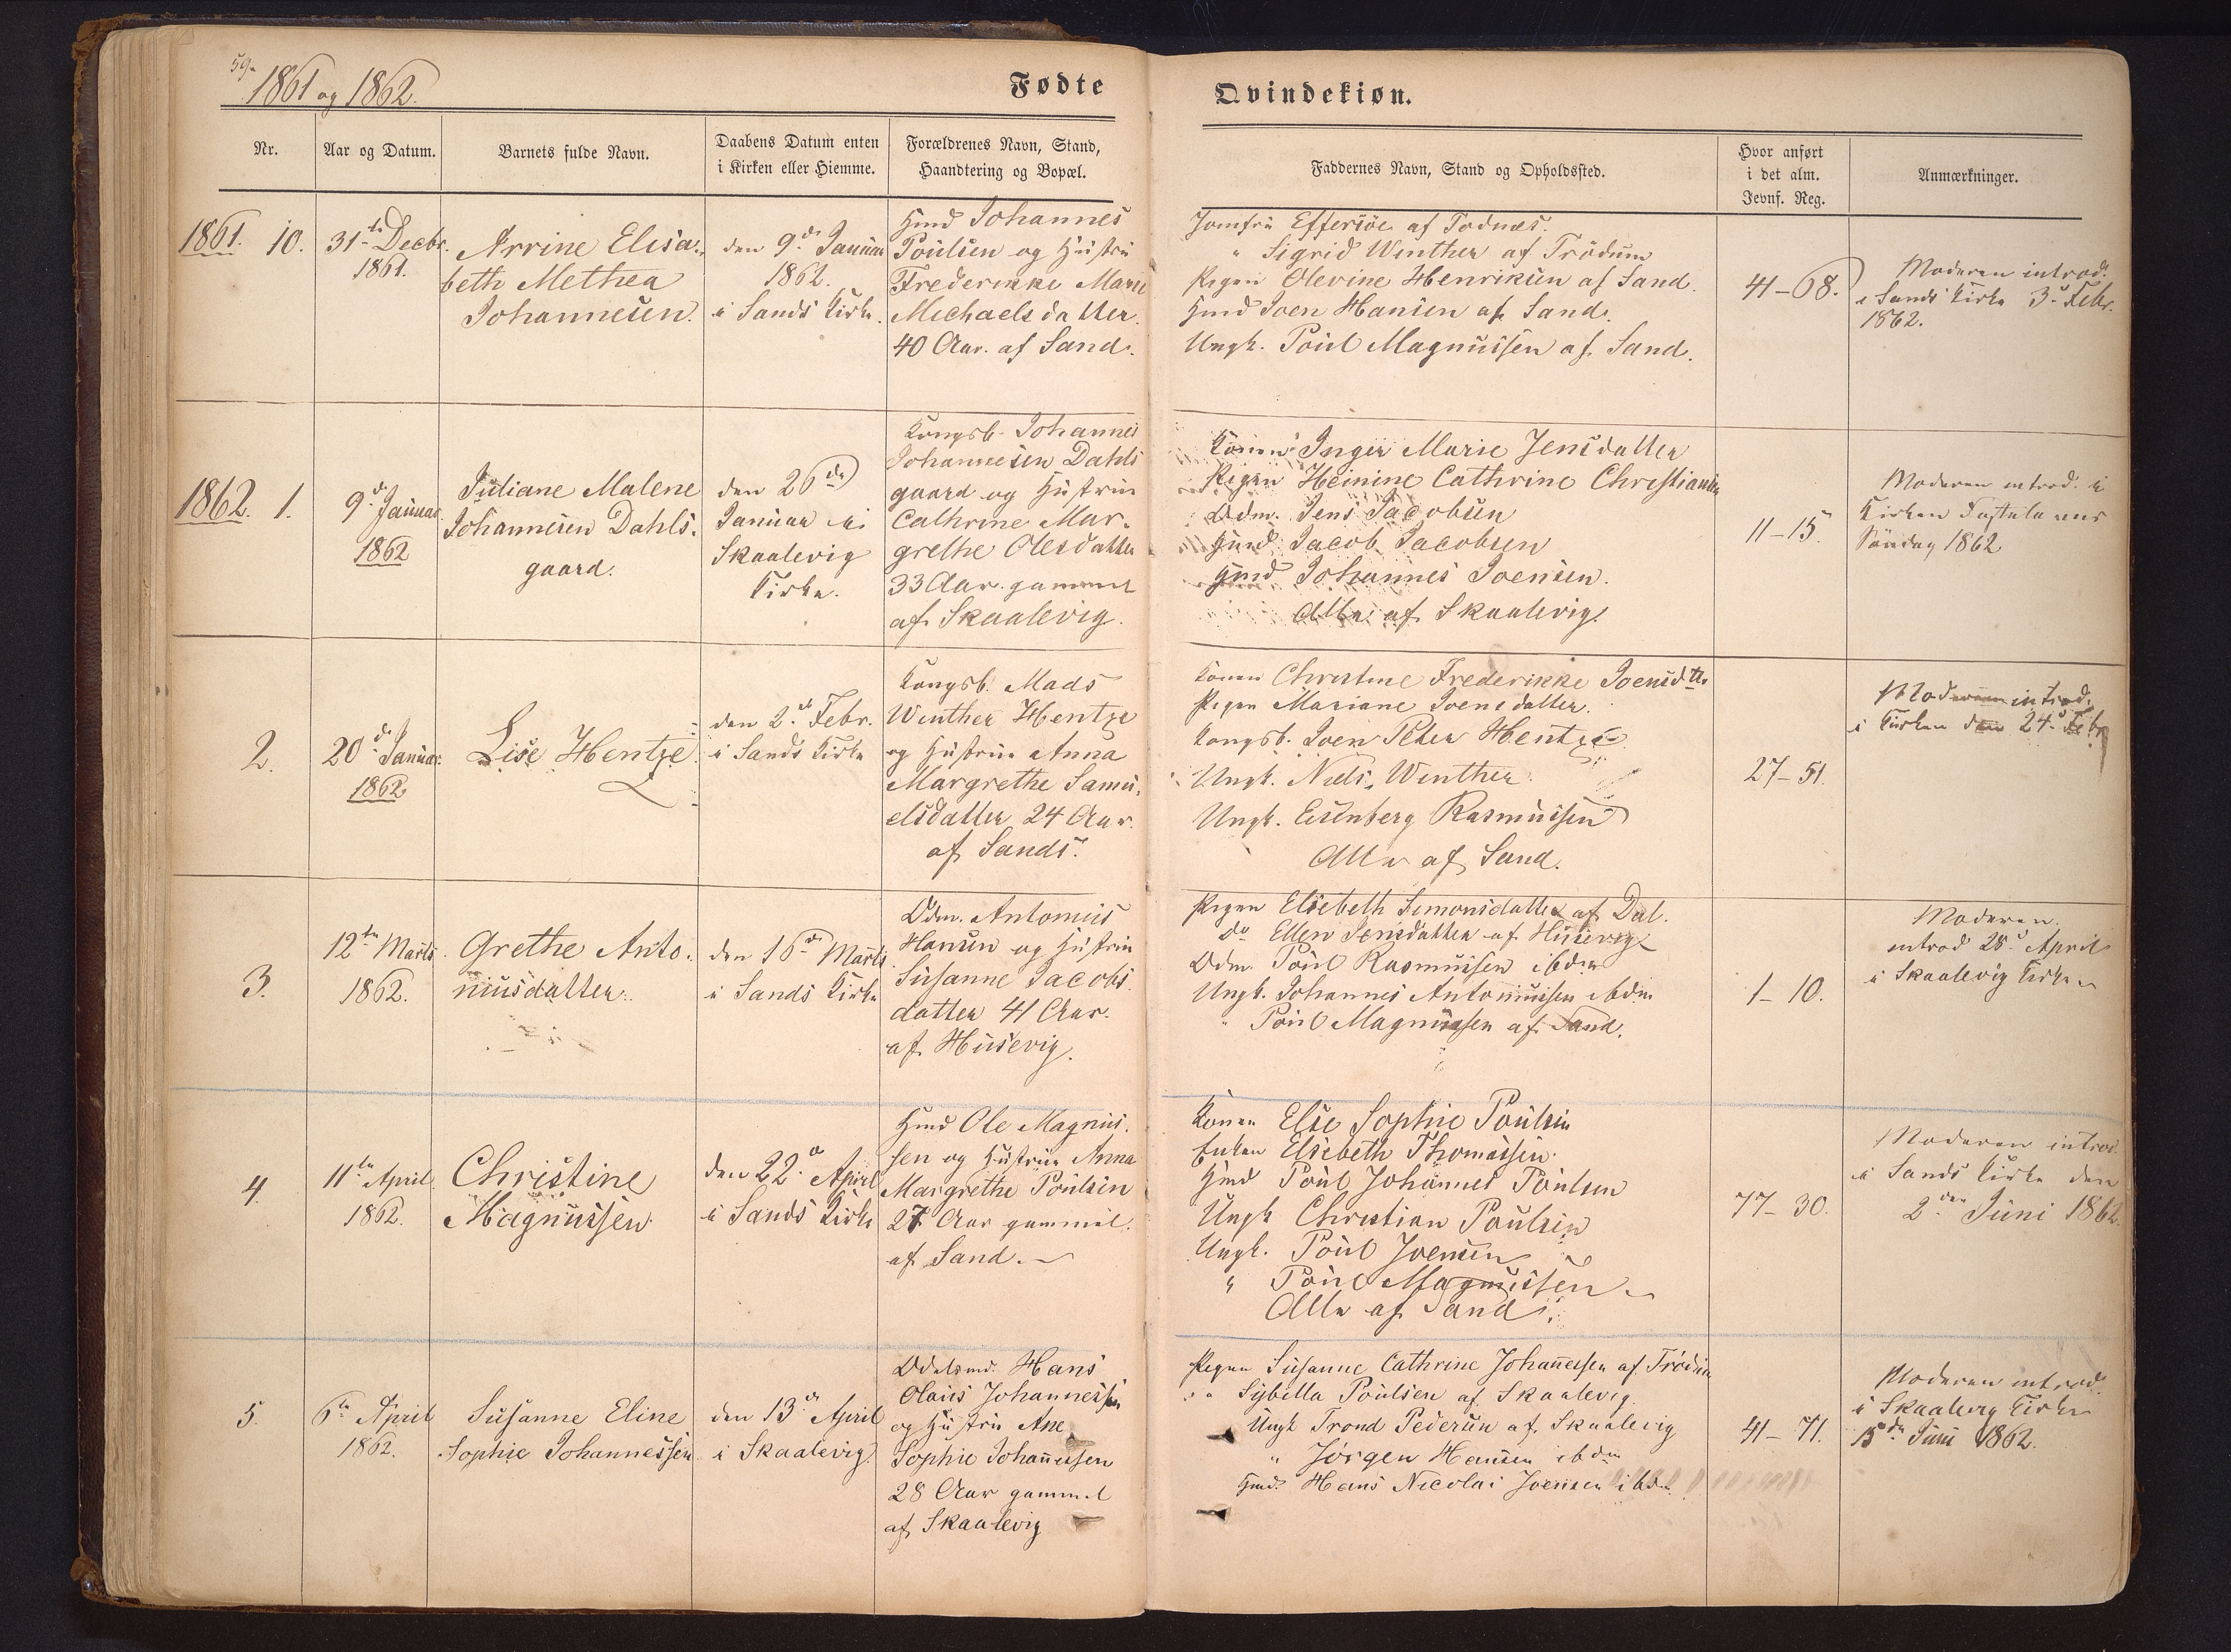 59.
1861 og 1862.
Fødte
Qvindekiøn.
Nr.
Aar og Datum.
Barnets fulde Navn.
Daabens Datum enten
i Kirken eller Hiemme.
Forældrenes Navn, Stand,
Haandtering og Bopæl.
Faddernes Navn, Stand og Opholdssted.
Hvor anført
i det alm.
Jevnf. Reg.
Anmærkninger.
1861. 10.
31te Decbr.
1861.
Arrine Elisa-
beth Methea
Johannesen.
den 9de Januar
1862.
i Sands Kirke.
Hmd Johannes
Poulsen og Hustru
Frederikke Marie
Michaelsdatter
40 Aar. af Sand.
Jomfru Effersøe af Todnæs.
" Sigrid Winther af Trødum
Pigen Olevine Henriksen af Sand.
Hmd Joen Hansen af Sand.
Ungk. Poul Magnussen af Sand.
41-68.
Moderen introd.
i Sands Kirke 3d Febr.
1862.
1862. 1.
9de Januar
1862
Juliane Malene
Johannesen Dahls-
gaard.
den 26de
Januar i
Skaalevig
Kirke.
Kongsb. Johannes
Johannesen Dahls
gaard og Hustru
Cathrine Mar-
grethe Olesdatter
33 Aar gammel
af Skaalevig.
Konen Inger Marie Jensdatter
Pigen Heinine Cathrine Christiansen
Odm. Jens Jacobsen
Hmd Jacob Jacobsen
Hmd Johannes Joensen.
Alle af Skaalevig.
11-15.
Moderen introd. i
Kirken Fastelavns
Søndag 1862
2.
20de Januar
1862
Lise Hentze
den 2de Febr.
i Sands Kirke
Kongsb. Mads
Winther Hentze
og Hustrue Anna
Margrethe Samu-
elsdatter 24 Aar.
af Sands.
Konen Christine Frederikke Joensdtt.
Pigen Mariane Joensdatter.
Kongsb. Joen Peter Hentze
Ungk. Niels Winther
Ungk. Eisenberg Rasmussen
Alle af Sand.
27-51.
Moderen introd.
i Kirken den 24d Febr
3.
12te Marts
1862.
Grethe Anto-
niusdatter.
den 16de Marts
i Sands Kirke
Odm. Antonius
Hansen og Hustrue
Susanne Jacobs
datter 41 Aar.
af Husevig.
Pigen Elsebeth Simonsdatter af Dal.
do Ellen Jensdatter af Husevig
Odm. Poul Rasmussen ibdm
Ungk. Johannes Antoniussen ibdm
" Poul Magnussen af Sand.
1-10.
Moderen
introd 28d April
i Skaalevig Kirke
4.
11te April
1862.
Christine
Magnussen
den 22d April
i Sands Kirke
Hmd Ole Magnus-
sen og Hustrue Anna
Margrethe Poulsen
27 Aar gammel.
af Sand.
Konen Else Sophie Poulsen
Enken Elsebeth Thomassen.
Hmd Poul Johannes Poulsen
Ungk Christian Poulsen
Ungk. Poul Joensen
" Poul Magnussen
Alle af Sand.
77-30.
Moderen introd.
i Sands Kirke den
2den Juni 1862.
5.
6te April
1862.
Susanne Eline
Sophie Johannessen
den 13de April
i Skaalevig
Odelsmd. Hans
Olaus Johannessen
og Hustru Ane
Sophie Johannessen
28 Aar gammel
af Skaalevig
Pigen Susanne Cathrine Johannessen af Trødum
" Sybilla Poulsen af Skaalevig
Ungk Trond Pedersen af Skaalevig
" Jørgen Hansen ibdm
Hmd. Hans Nicolai Joensen ibdm
41-71.
Moderen introd.
i Skaalevig Kirke
15de Juni 1862.